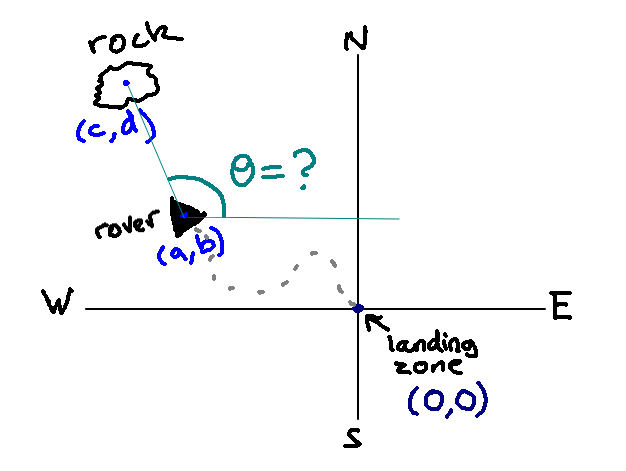 rock
N
(c,d)
θ=?
rover
(a,b)
W
E
landing
zone
(0,0)
S